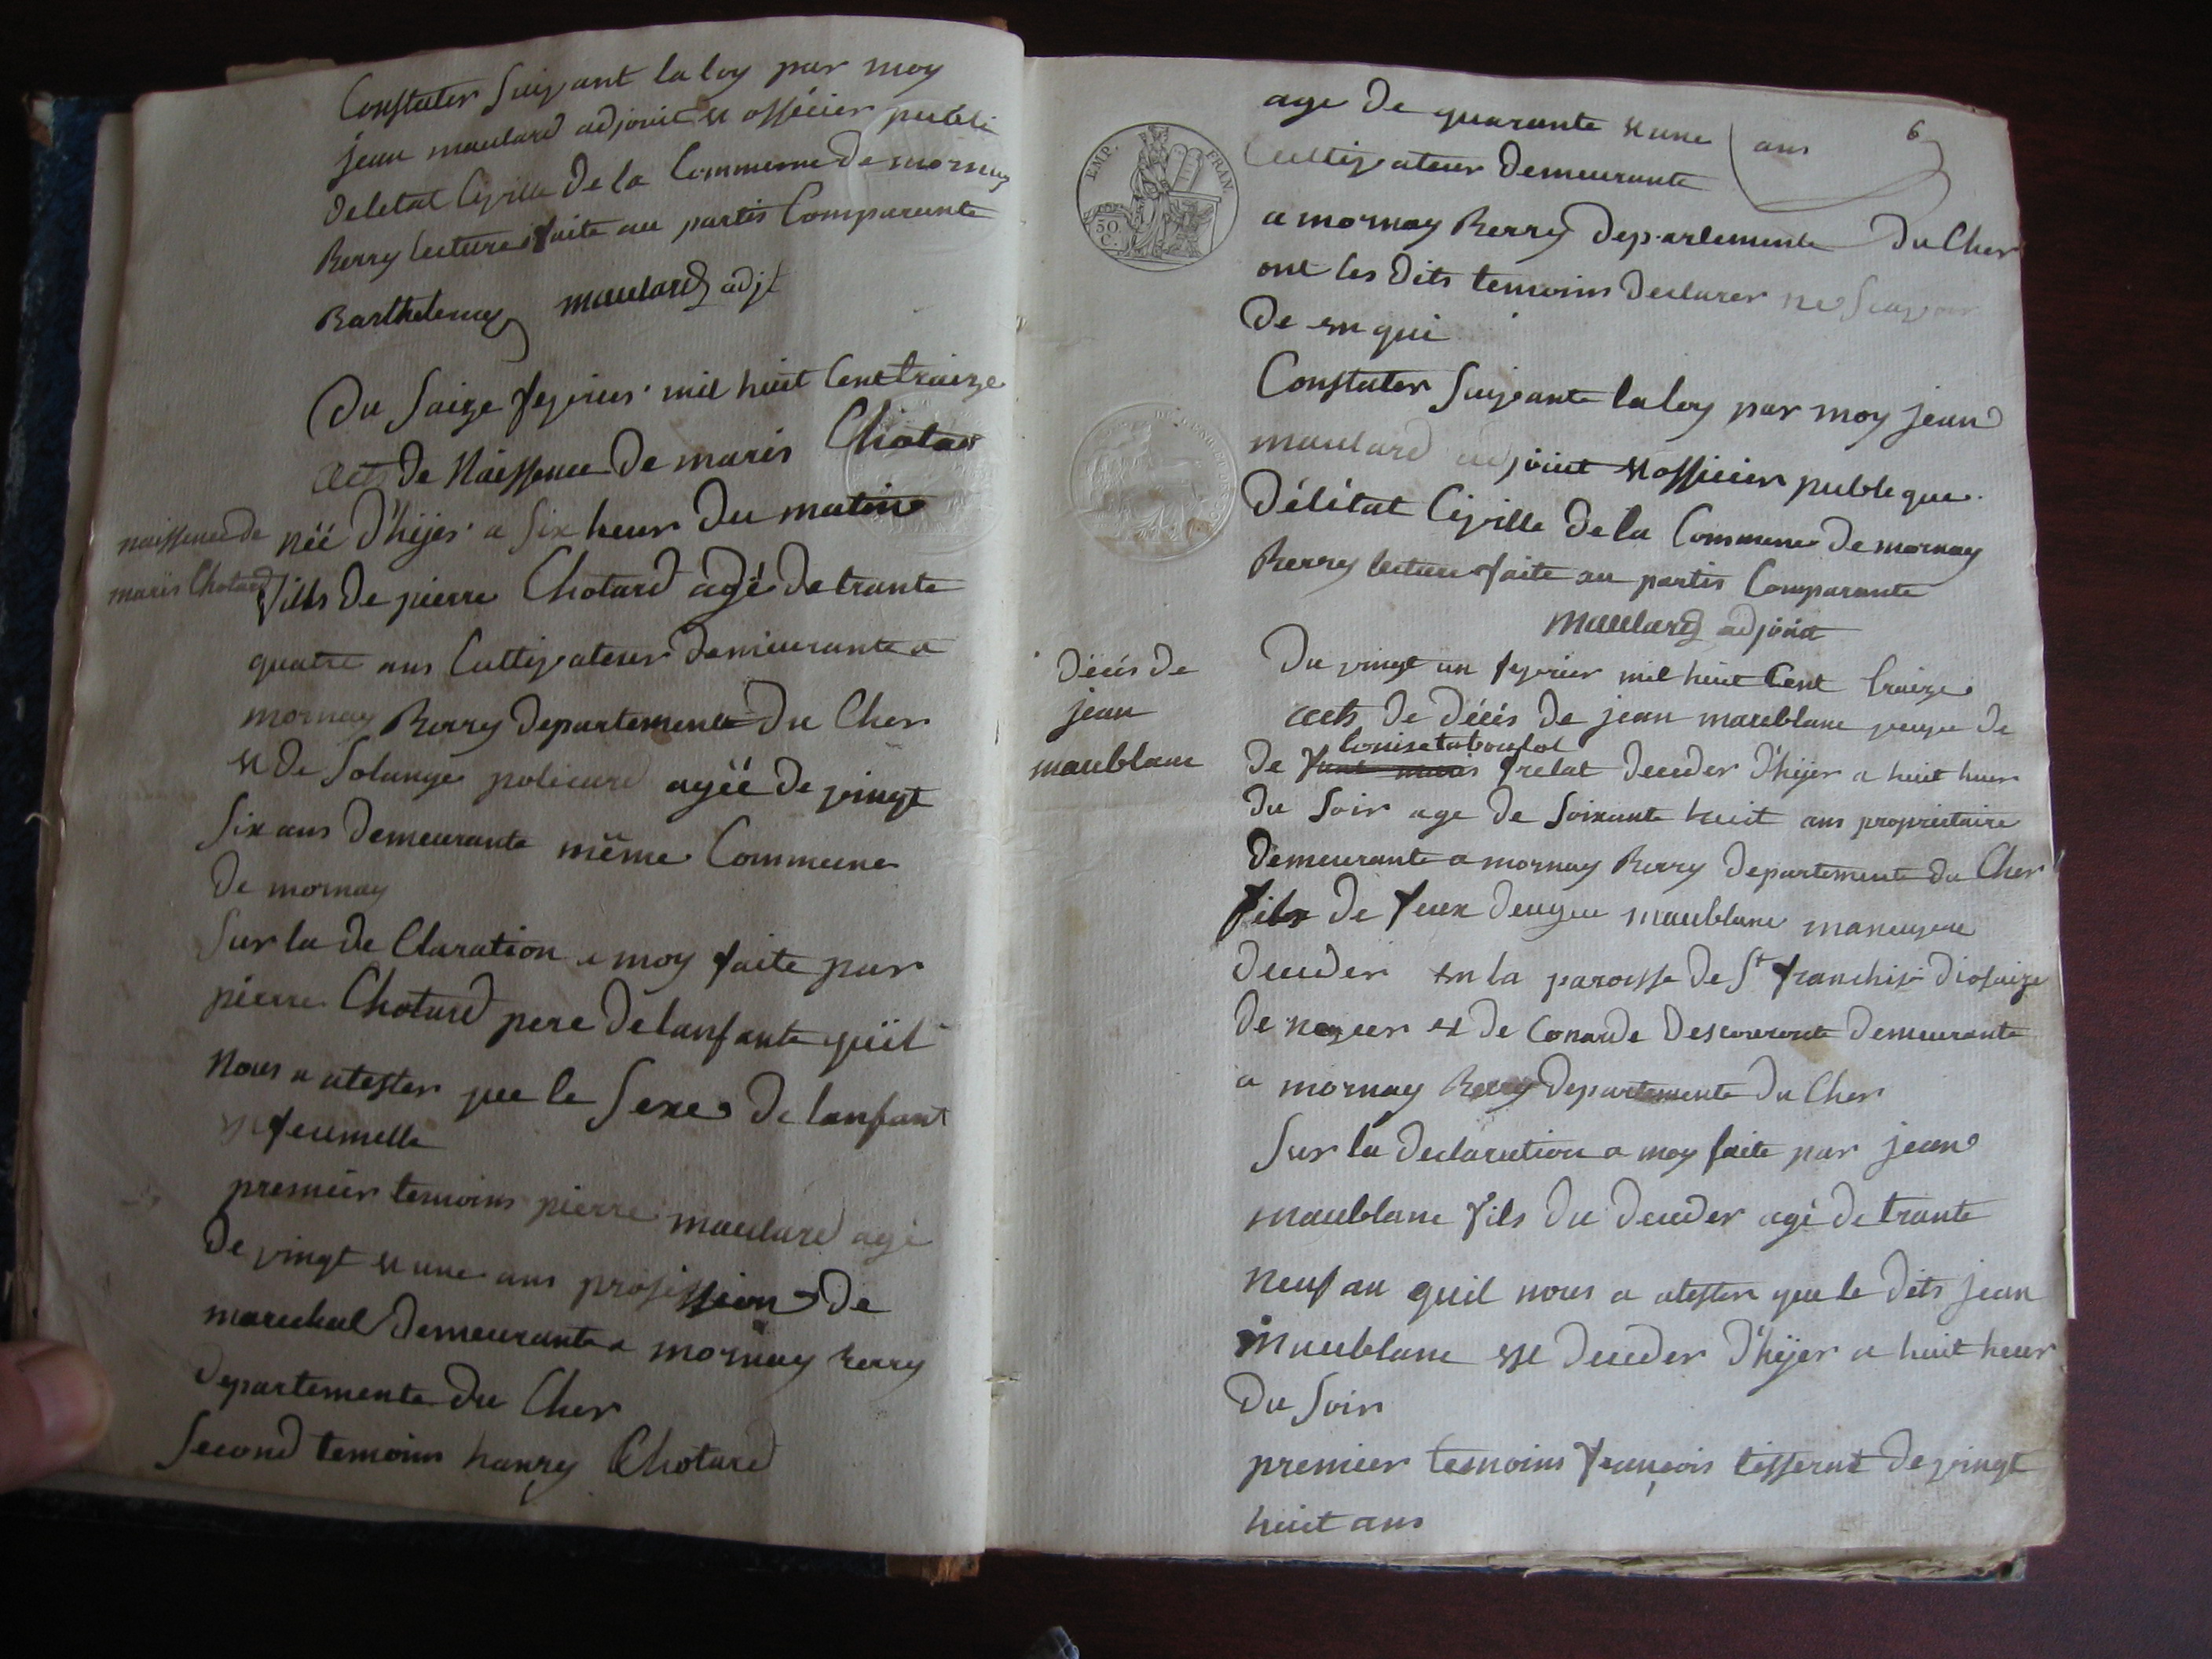 Constater Suivant la loy par moy
jean maulard adjoint et officier publi
deletat Civille De la Commune De mornay
Berry lecture faite au partis Comparante
Barthelemy maulard adjt
Du Saize fevrier mil huit Cent traize
acts De Naissence De maris Chotard
naissence de
maris Chotard
néé D'hijer a Six heur Du matin
fills De pierre Chotard agé De trante
quatre ans Cultivateur Demeurante a
mornay Berry Departemente Du Cher
et De Solange policard agéé De vingt
Six ans Demeurante même Commune
De mornay
Sur la de Claration a moy faite par
pierre Chotard pere De lanfante quil
nous a atester que le Sexe De lanfant
feumelle
premier temoins pierre maulard agé
De vingt et une ans profission De
marechal Demeurante a mornay berry
Departemente Du Cher
Second temoins hanry Chotard
6
age De quarante et une ans
Cultivateur Demeurante
a mornay Berry Departemente Du Cher
ont les Dits temoins Declarer ne Scavoir
De en qui
EMP. FRAN.
50
C.
Constater Suivante la loy par moy jean
maulard adjoint et officier publique
Délétat Civille De la Commune De mornay
Berry lecture faite au partis Comparante
maulard adjoint
Décés De
jean
maublanc
Du vingt un fevrier mil huit Cent traize
acts De Décés De jean maublanc De
De frelat Deceder D'hijer a huit heur
Du Soir age De Soixante huit ans proprietaire
Demeurante a mornay Berry Departemente Du Cher
fils De feux maublanc
Deceder en la paroisse De St franchis
De et De Demeurante
a mornay Berry Departemente Du Cher
Sur la Declaration a moy faite par jean
maublanc fils Du Deceder agé De trante
neuf an quil nous a atester que le Dits jean
maublanc est Deceder D'hijer a huit heur
Du Soir
premier temoins françois De vingt
huit ans